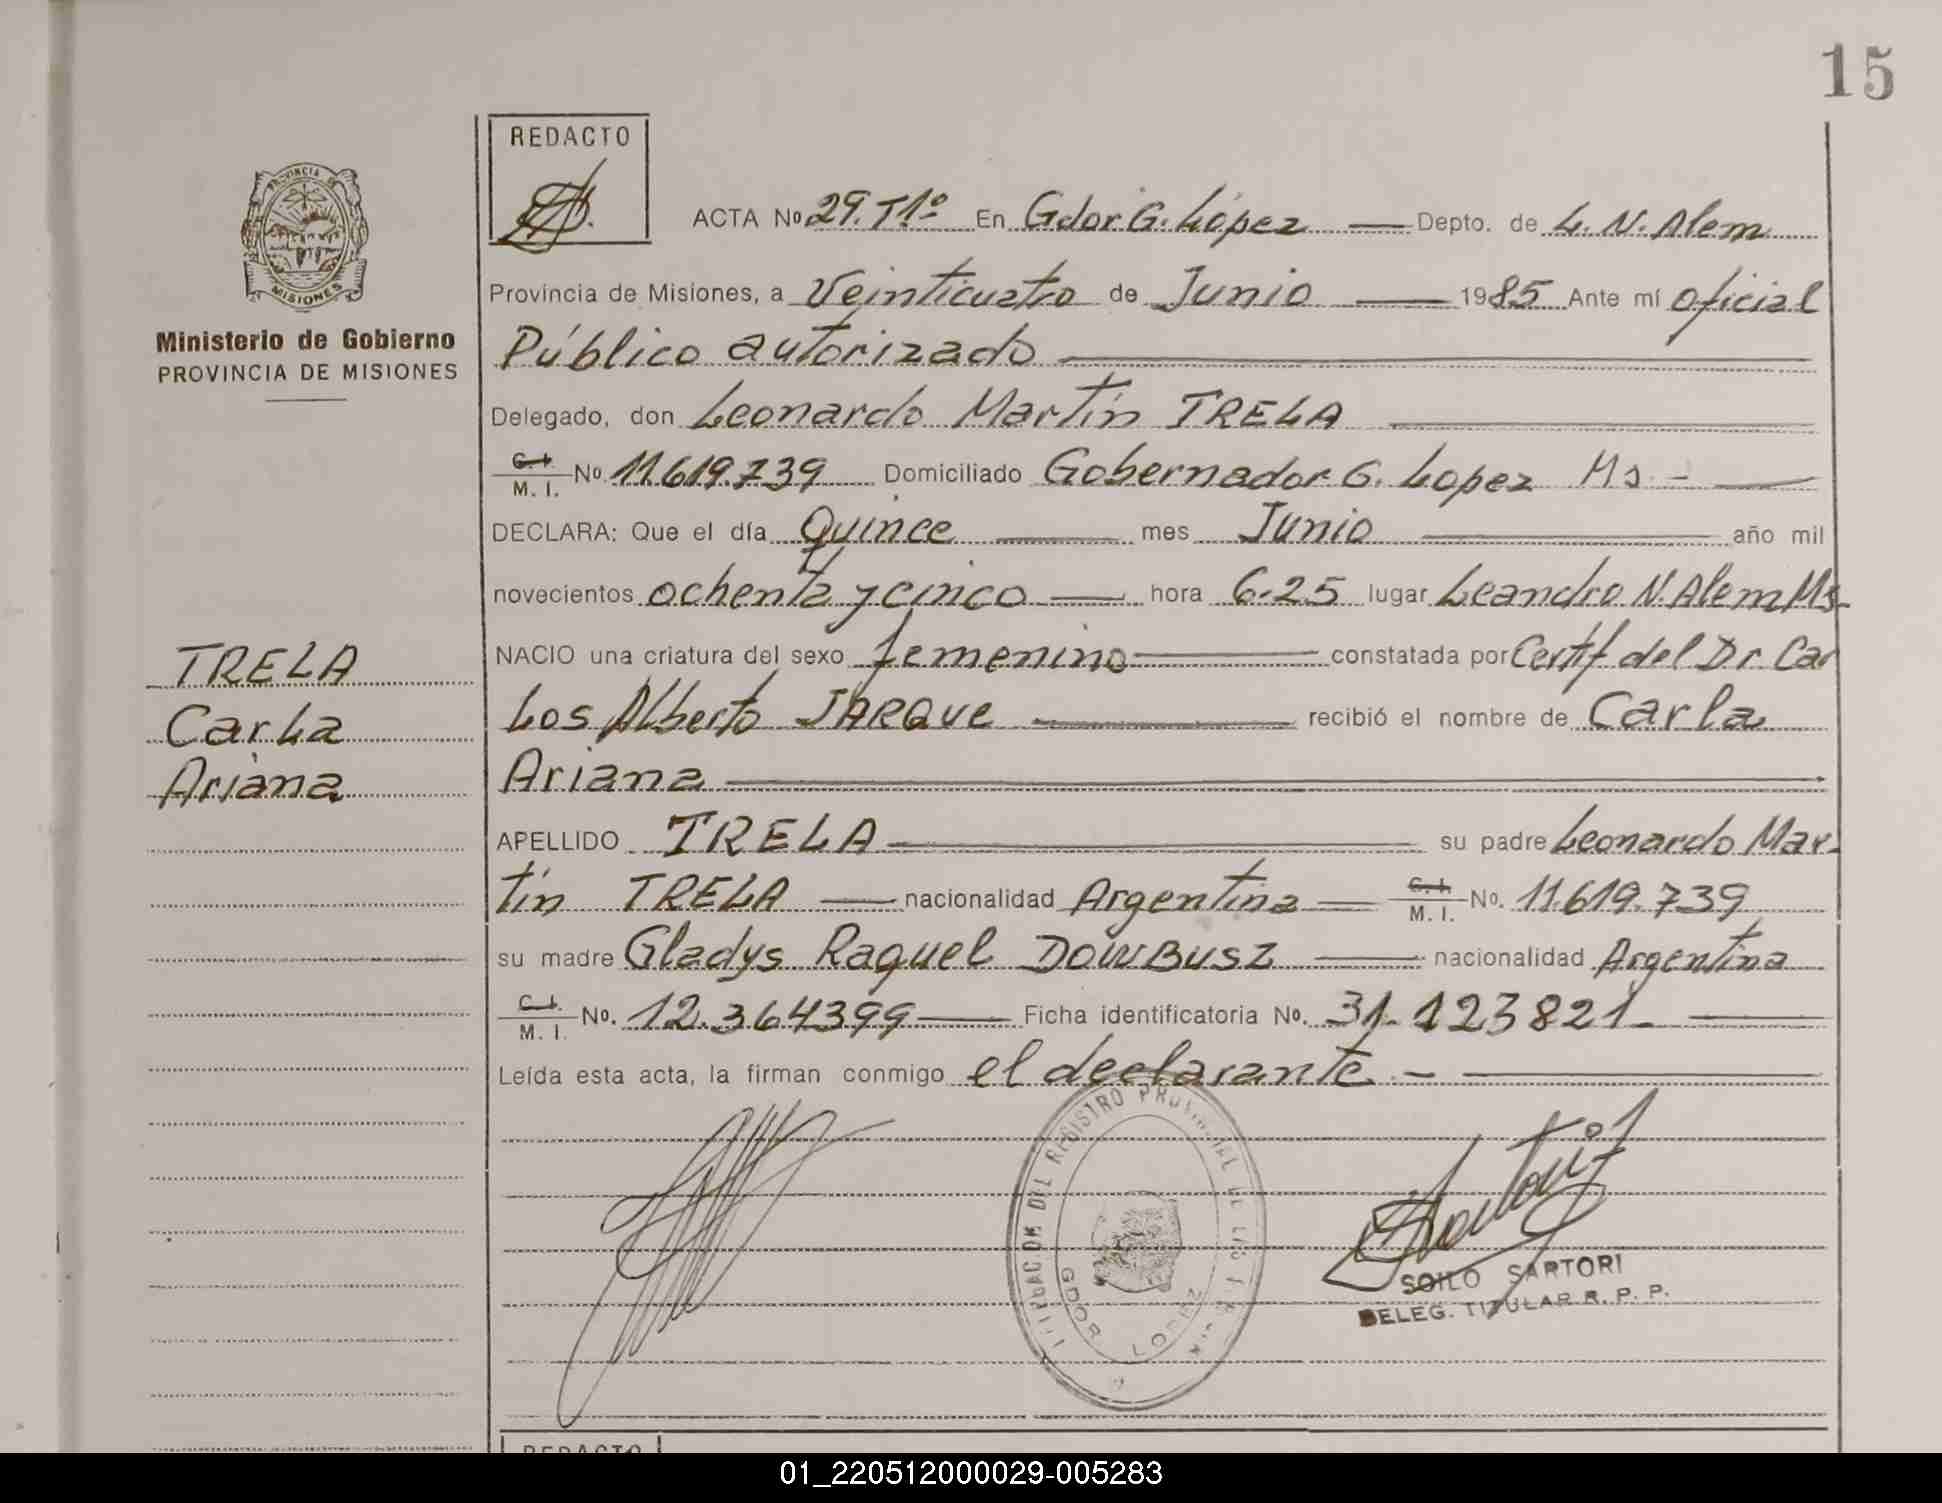 15
REDACTO
PROVINCIA DE
MISIONES
Ministerio de Gobierno
PROVINCIA DE MISIONES
ACTA No 29. T1º En Gdor G. López Depto. de L. N. Alem
Provincia de Misiones, a Veinticuatro de Junio 1985 Ante mí oficial
Público autorizado
Delegado, don Leonardo Martín TRELA
C. I. / M. I. No. 11.619.739 Domiciliado Gobernador G. Lopez Ms. -
DECLARA: Que el día Quince mes Junio año mil
novecientos ochenta y cinco hora 6.25 lugar Leandro N. Alem Ms.
NACIO una criatura del sexo femenino constatada por Certif del Dr Car
Los Alberto JARQUE recibió el nombre de Carla
Ariana
APELLIDO TRELA su padre Leonardo Mar-
tín TRELA nacionalidad Argentina C. I. / M. I. No. 11.619.739
su madre Gladys Raquel DOWBUSZ nacionalidad Argentina
C. I. / M. I. No. 12.364399 Ficha identificatoria No. 31-123821-
Leída esta acta, la firman conmigo el declarante. -
TRELA
Carla
Ariana
DEL REGISTRO PROVINCIAL DE LAS
GDOR LOPEZ
SOILO SARTORI
DELEG. TITULAR R. P. P.
REDACTO
01_220512000029-005283